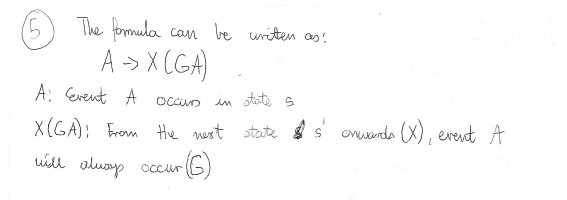 5 The formula can be written as:
A -> X(GA)
A: Event A occurs in state s
X(GA): From the next state s' onwards (X), event A
will always occur (G)